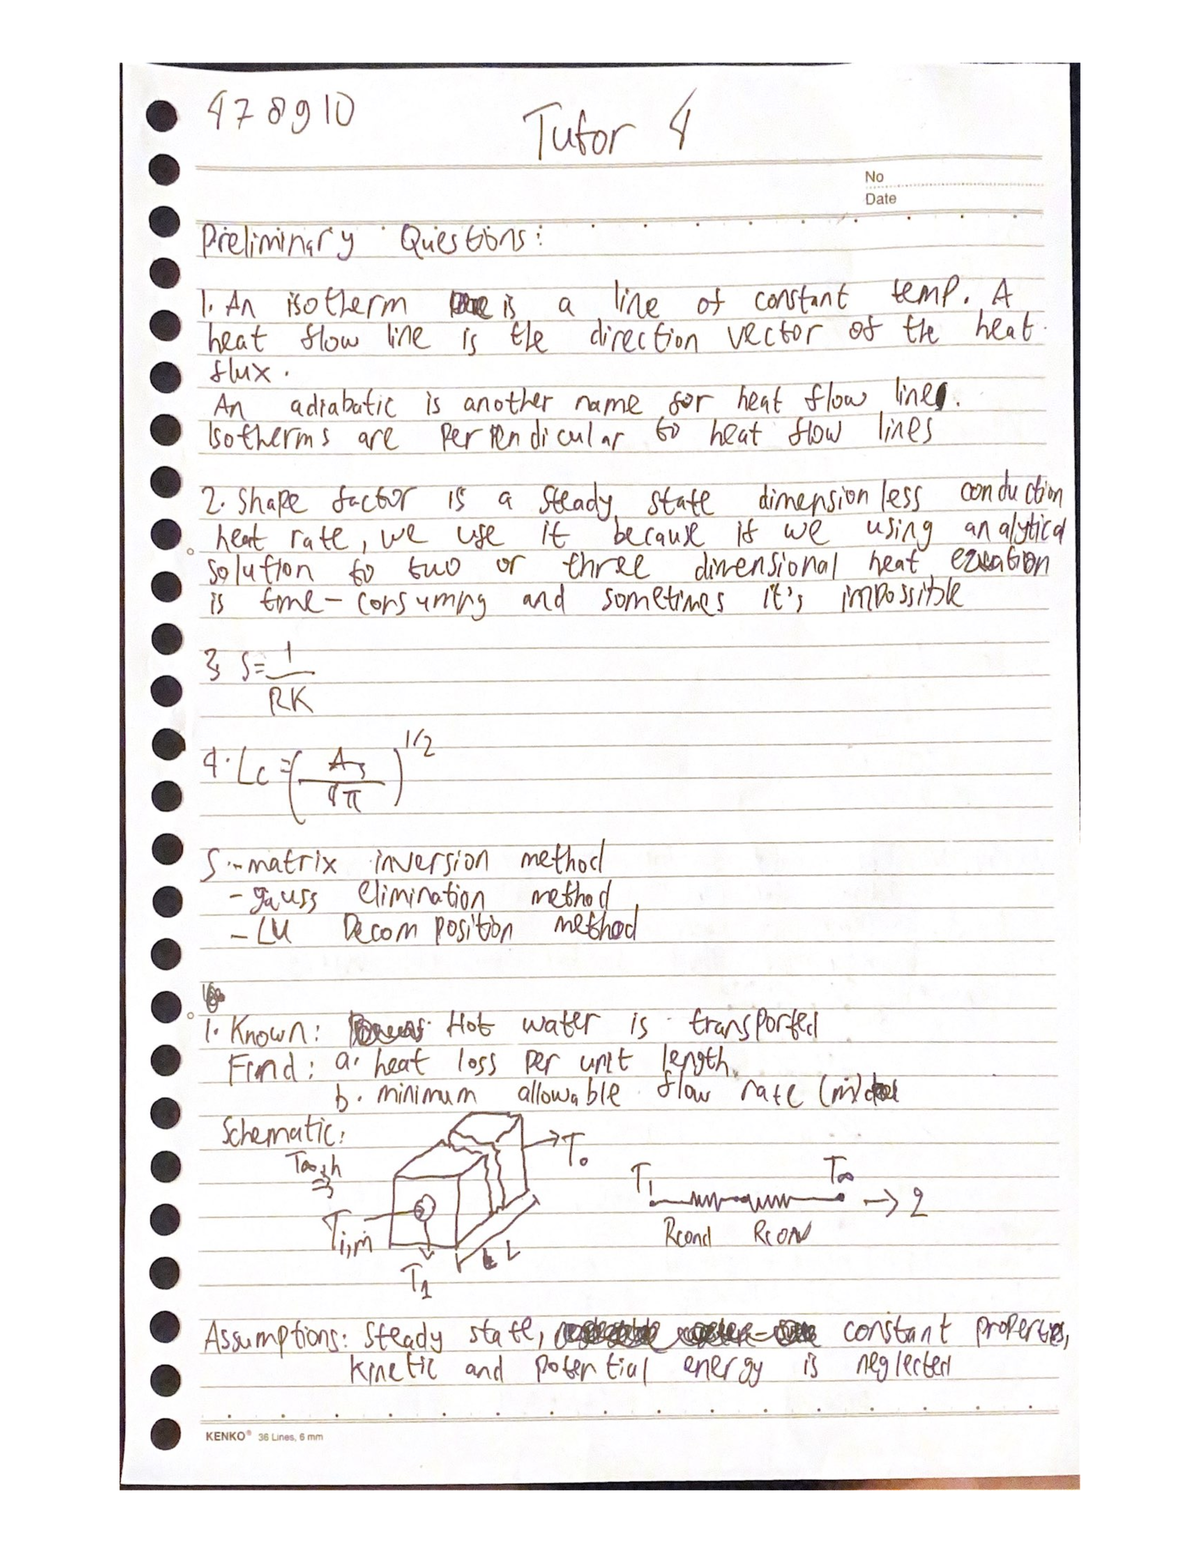 478910
Tutor 4
No
Date
Preliminary Questions:
1. An isotherm is a line of constant temp. A
heat flow line is the direction vector of the heat
flux.
An adiabatic is another name for heat flow lines.
Isotherms are Perpendicular to heat flow lines
2. Shape factor is a steady state dimensionless conduction
heat rate, we use it because if we using analytical
solution to two or three dimensional heat equation
is time-consuming and sometimes it's impossible
3. S = 1
RK
4. Lc = (As / 4π)^1/2
5. -matrix inversion method
- gauss elimination method
- LU Decomposition method
1. Known: Hot water is transported
Find: a. heat loss per unit length.
b. minimum allowable flow rate (ṁ)
Schematic:
T∞, h
→ T∞
T1 T∞
→ q
Ti, ṁ
Rcond Rconv
T1
L
Assumptions: Steady state, constant properties,
kinetic and potential energy is neglected
KENKO® 36 Lines, 6 mm